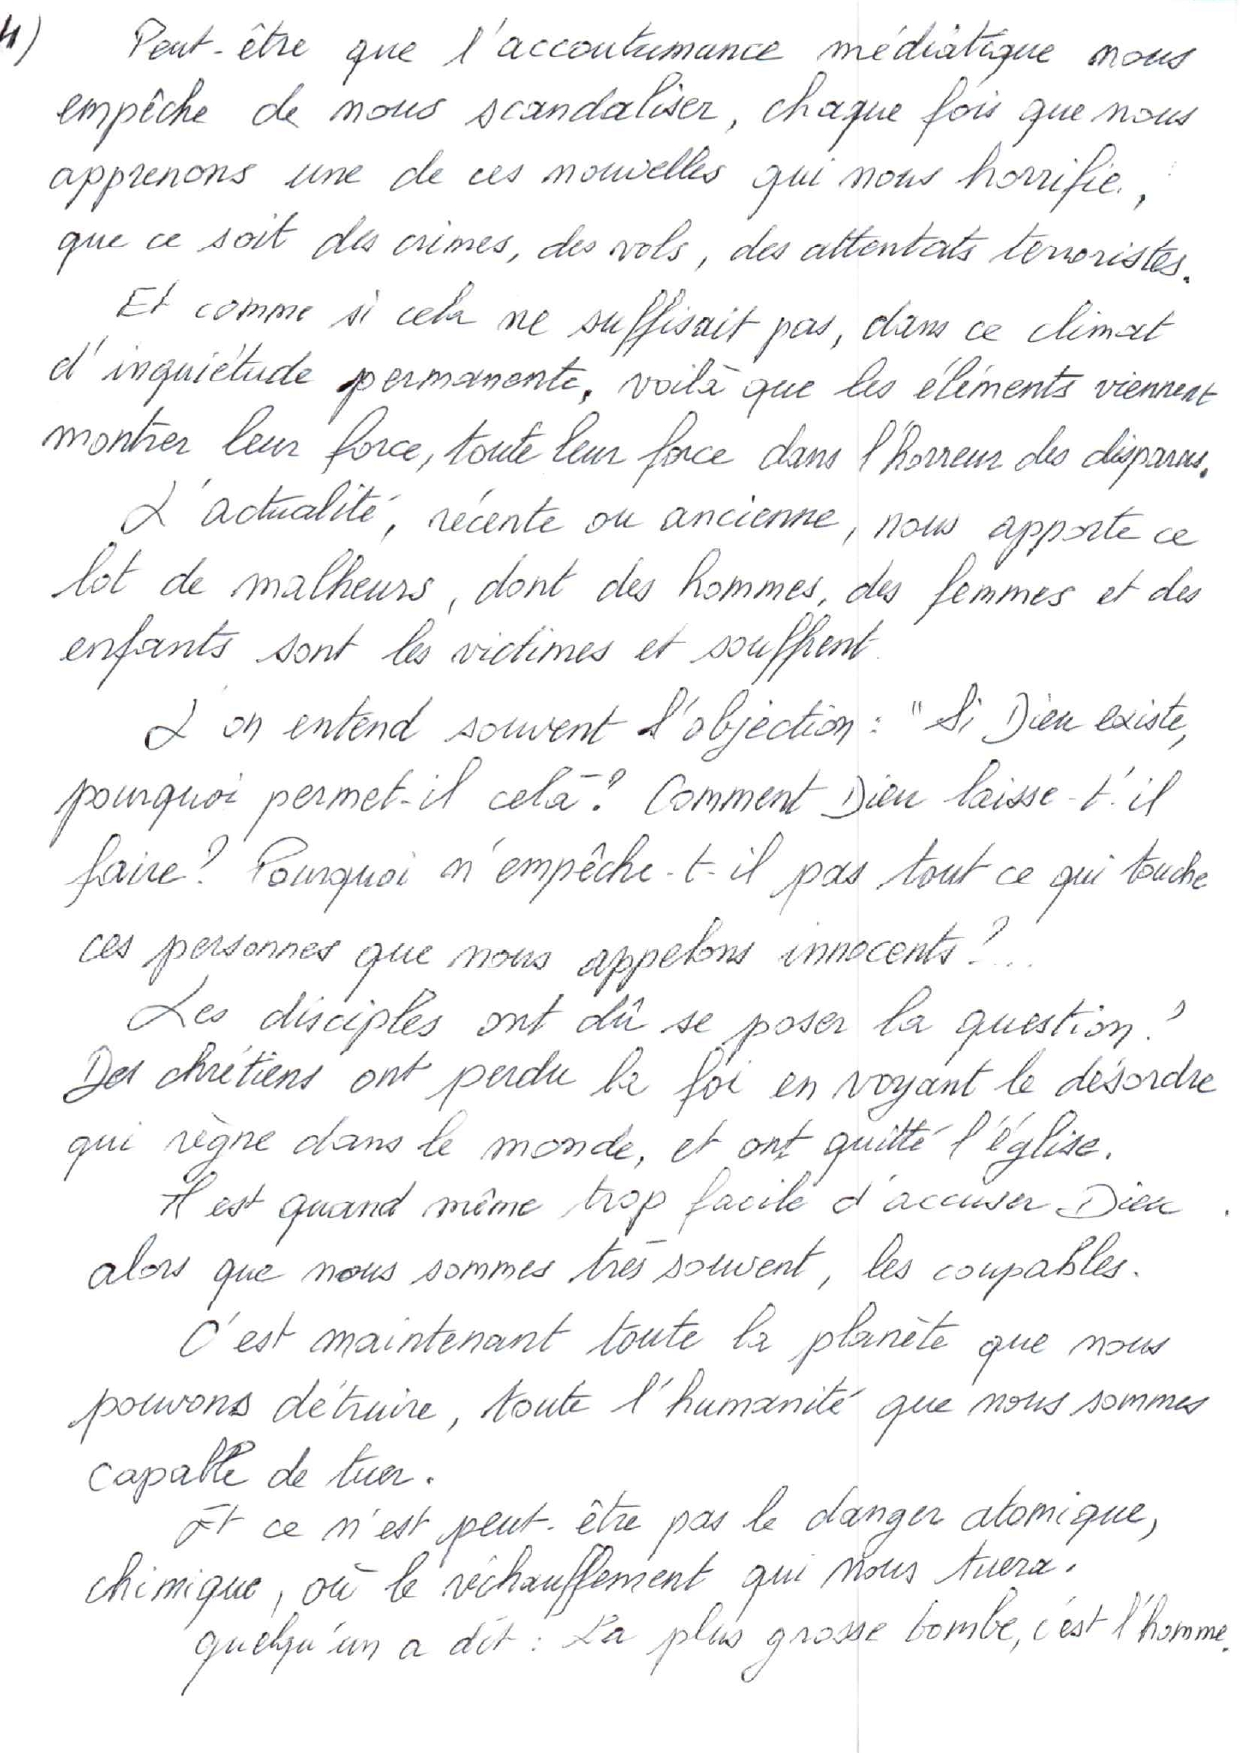 4) Peut-être que l'accoutumance médiatique nous
empêche de nous scandaliser, chaque fois que nous
apprenons une de ces nouvelles qui nous horrifie,
que ce soit des crimes, des vols, des attentats terroristes.
Et comme si cela ne suffisait pas, dans ce climat
d'inquiétude permanente, voilà que les éléments viennent
montrer leur force, toute leur force dans l'horreur des disparus.
L'actualité, récente ou ancienne, nous apporte ce
lot de malheurs, dont des hommes, des femmes et des
enfants sont les victimes et souffrent.
L'on entend souvent l'objection : "Si Dieu existe,
pourquoi permet-il celà ? Comment Dieu laisse-t'il
faire ? Pourquoi n'empêche-t-il pas tout ce qui touche
ces personnes que nous appelons innocents ?...
Les disciples ont dû se poser la question ?
Des chrétiens ont perdu la foi en voyant le désordre
qui règne dans le monde, et ont quitté l'église.
Il est quand même trop facile d'accuser Dieu
alors que nous sommes très souvent, les coupables.
C'est maintenant toute la planète que nous
pouvons détruire, toute l'humanité que nous sommes
capable de tuer.
Et ce n'est peut-être pas le danger atomique,
chimique, où le réchauffement qui nous tuera.
quelqu'un a dit : La plus grosse bombe, c'est l'homme.